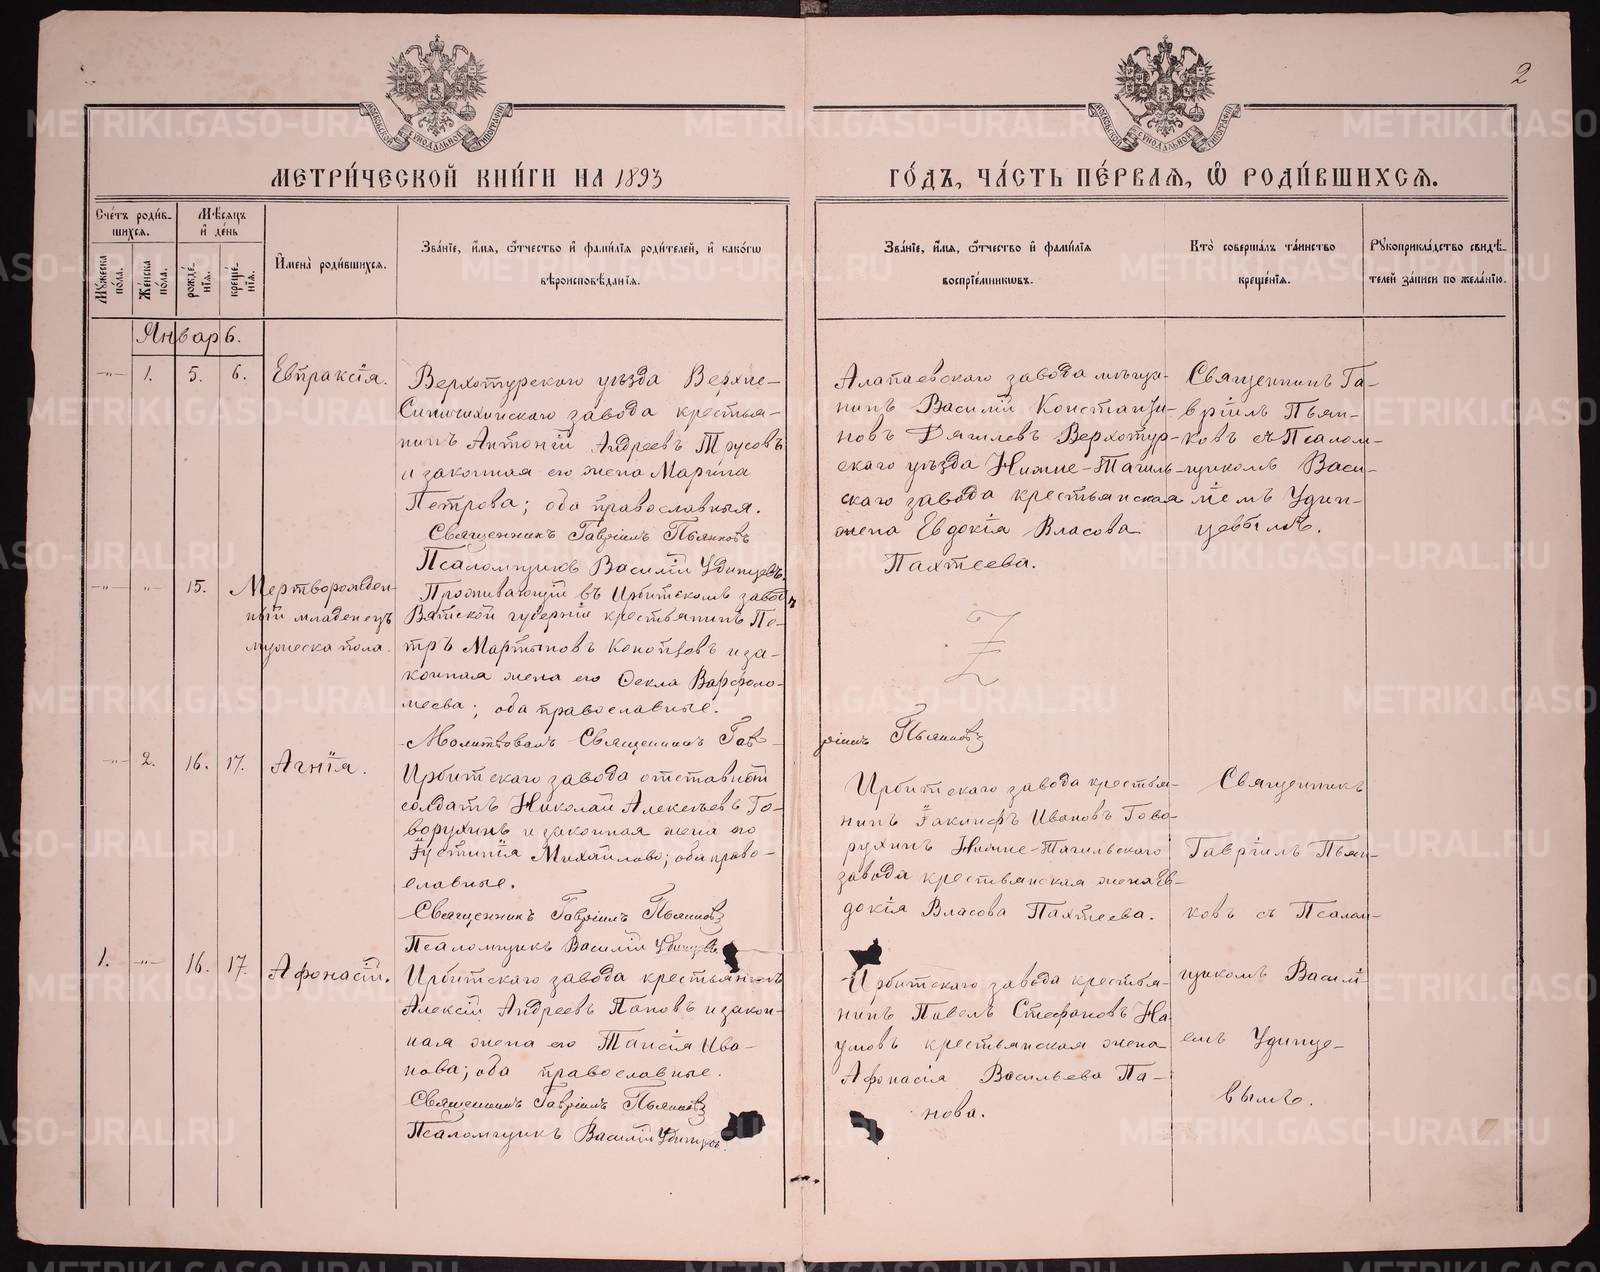 2
МЕТРИ́ЧЕСКОЙ КНИ́ГИ НА 1893
ГО́ДЪ, ЧА́СТЬ ПЕ́РВАѦ, Ѡ РОДИ́ВШИХСѦ.
Сче́тъ роди́в-
шихсѧ.
Мѣ́сѧцъ
и҆ де́нь
Мꙋ́жеска по́ла.
Же́нска по́ла.
рожде́-
нїѧ.
креще́-
нїѧ.
И҆мена̀ роди́вшихсѧ.
Зва́нїе, и҆́мѧ, ѻ҆́тчество и҆ фами́лїѧ роди́телей, и҆ како́гѡ
вѣроисповѣ́данїѧ.
Зва́нїе, и҆́мѧ, ѻ҆́тчество и҆ фами́лїѧ
воспрїе́мникѡвъ.
Кто̀ соверша́лъ та́инство
креще́нїѧ.
Рꙋкоприкла́дство свидѣ́-
телей за́писи по жела́нїю.
Январь.
-"- 1. 5. 6. Евпраксія.
Верхотурскаго уѣзда Верхне-
Синячихинскаго завода крестья-
нинъ Антоній Андреевъ Трусовъ
и законная его жена Марина
Петрова; оба православныя.
Священникъ Гавріилъ Пьянковъ
Псаломщикъ Василій Удинцевъ.
Алапаевскаго завода мѣща-
нинъ Василій Константи-
новъ Дягилевъ Верхотур-
скаго уѣзда Нижне-Тагиль-
скаго завода крестьянская
жена Евдокія Власова
Пахтеева.
Священникъ Га-
вріилъ Пьян-
ковъ съ Псалом-
щикомъ Васи-
ліемъ Удин-
цевымъ.
-"- -"- 15. Мертворожден-
ный младенецъ
мужеска пола.
Проживающій въ Ирбитскомъ заводѣ
Вятской губерніи крестьянинъ Пе-
тръ Мартыновъ и за-
конная жена его Ѳекла Варфоло-
меева; оба православные.
Молитвовалъ Священникъ Гав-
ріилъ Пьянковъ
-"- 2. 16. 17. Агнія.
Ирбитскаго завода отставной
солдатъ Николай Алексѣевъ Го-
ворухинъ и законная жена его
Іустинія Михайлова; оба право-
славные.
Священникъ Гавріилъ Пьянковъ
Псаломщикъ Василій Удинцевъ
Ирбитскаго завода крестья-
нинъ Іакинфъ Ивановъ Гово-
рухинъ Нижне-Тагильскаго
завода крестьянская жена Ев-
докія Власова Пахтеева.
Священникъ
Гавріилъ Пьян-
ковъ съ Псалом-
щикомъ Васили-
емъ Удинце-
вымъ.
1. -"- 16. 17. Афонасій.
Ирбитскаго завода крестьянинъ
Алексій Андреевъ Пановъ и закон-
ная жена его Таисія Ива-
нова; оба православные.
Священникъ Гавріилъ Пьянковъ
Псаломщикъ Василій Удинцевъ
Ирбитскаго завода крестья-
нинъ Павелъ Стефановъ На-
умовъ крестьянская жена
Афонасія Васильева Па-
нова.
METRIKI.GASO-URAL.RU